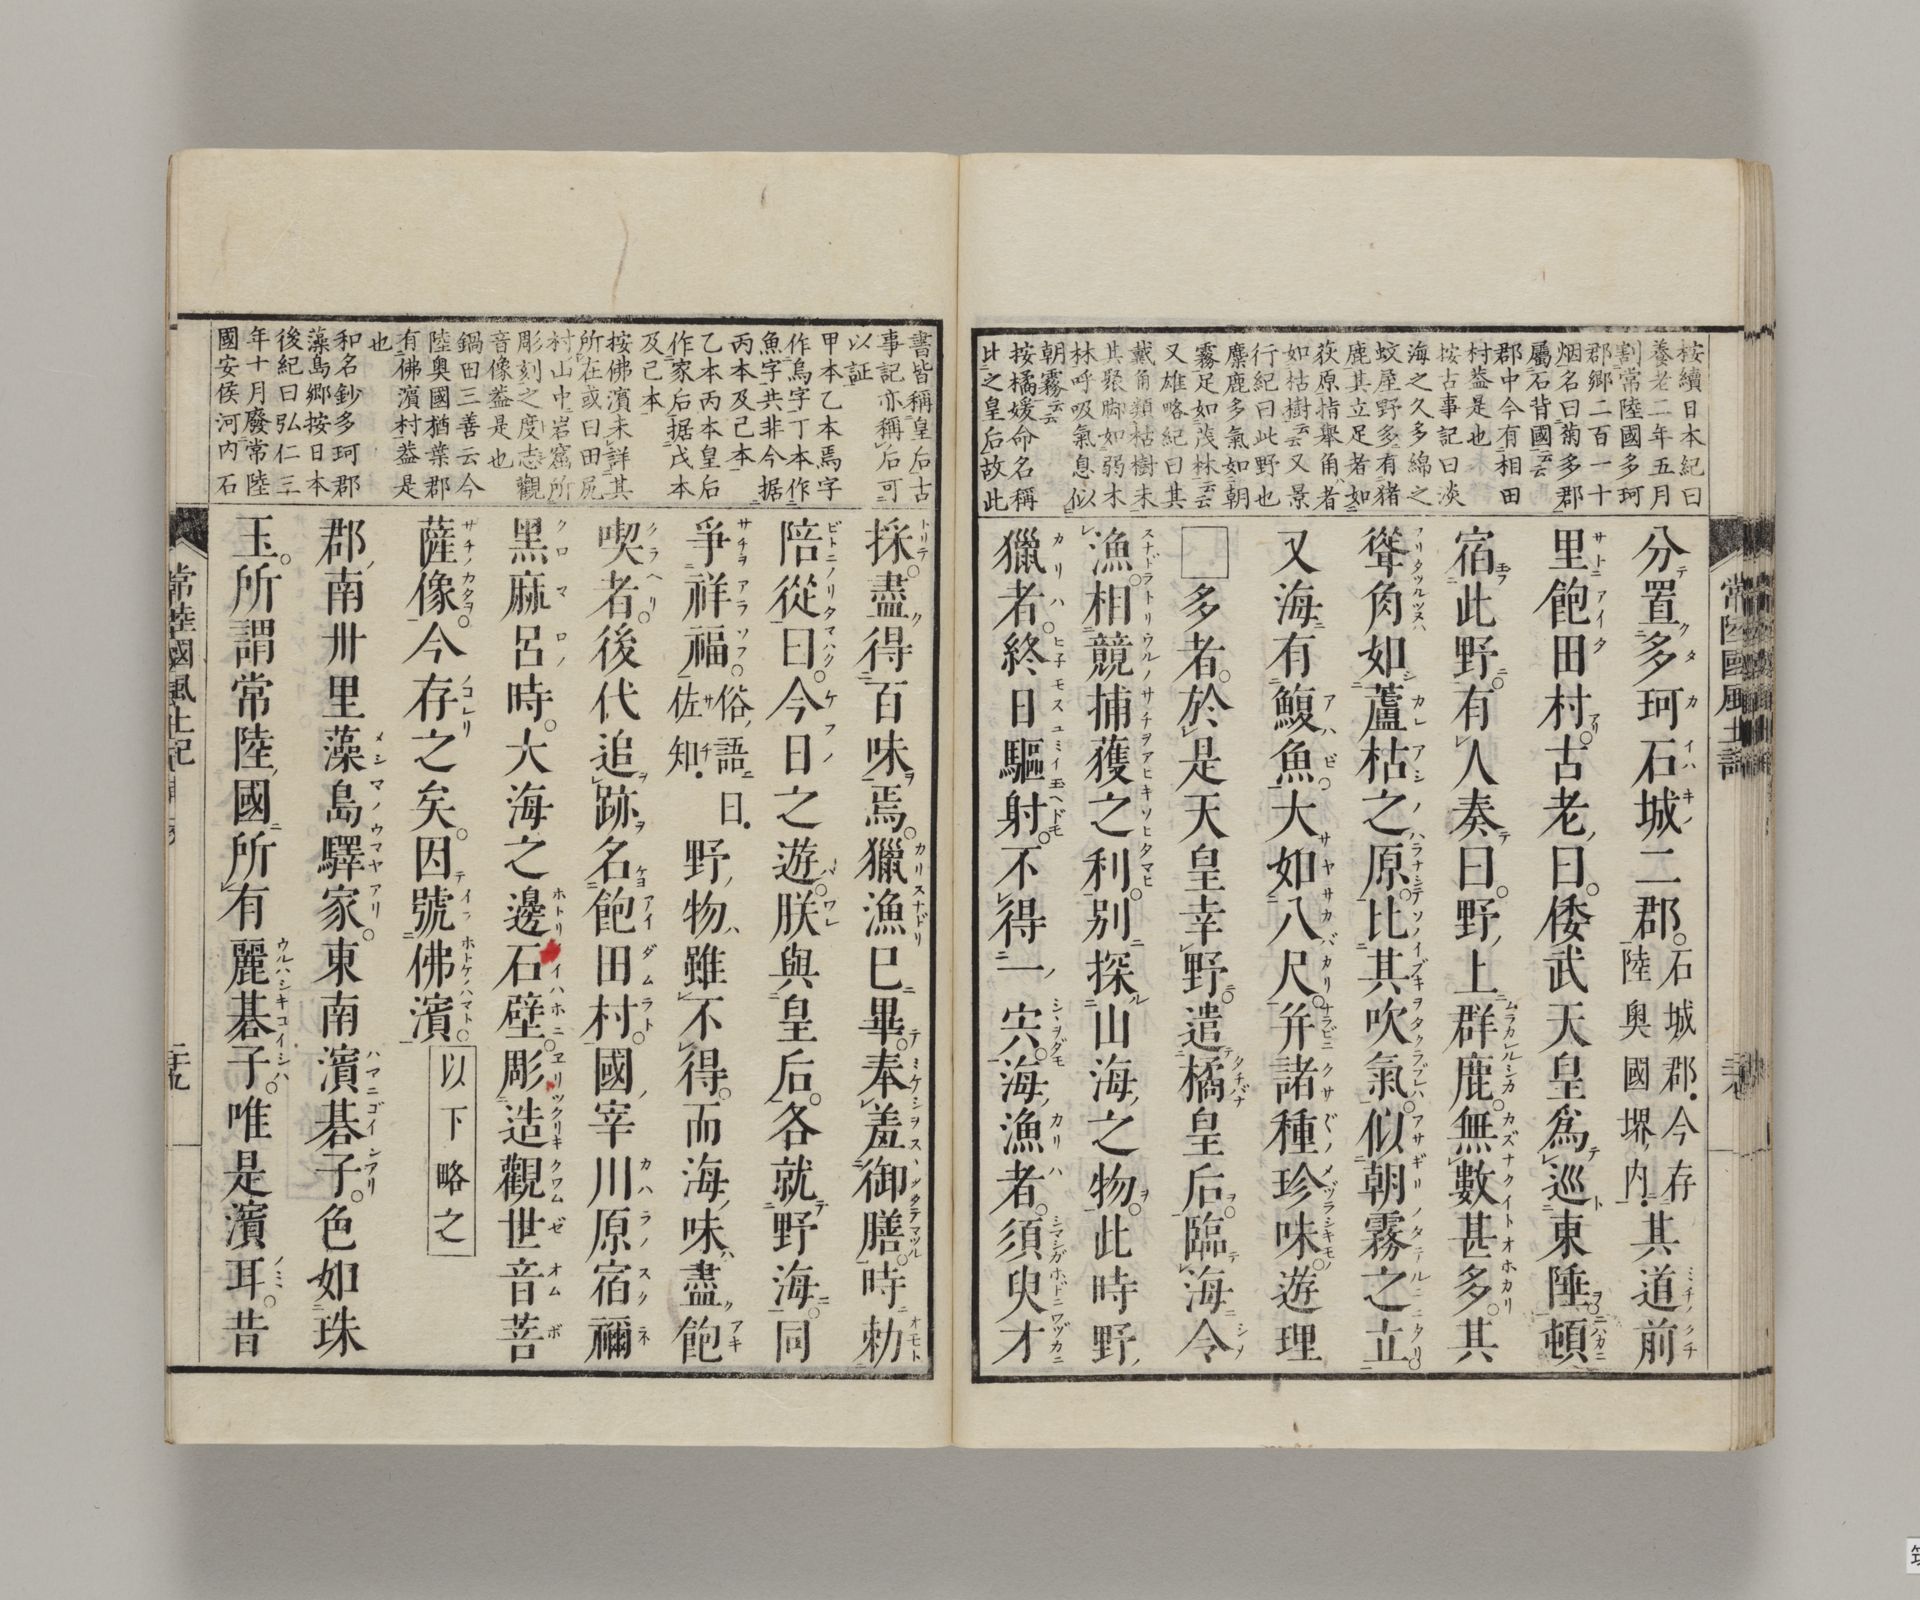 按續日本紀曰
養老二年五月
割常陸國多珂
郡郷二百一十
烟名曰菊多郡
屬石背國云云
郡中今有相田
村葢是也
按古事記曰淡
海之久多綿之
蚊屋野多有猪
鹿其立足者如
荻原指舉角者
如枯樹云云又景
行紀曰此野也
麋鹿多氣如朝
霧足如茂林云云
又雄略紀曰其
戴角類枯樹末
其聚脚如弱木
林呼吸氣息似
朝霧云云
按橘媛命名稱
比之皇后故此
分置多珂石城二郡。石城郡今存陸奥國堺内其道前
里飽田村。古老曰。倭武天皇爲巡東陲頓
宿此野。有人奏曰。野上群鹿。無數甚多。其
聳角如蘆枯之原。比其吹氣。似朝霧之立。
又海有鰒魚。大如八尺。并諸種珍味。遊理
□多者。於是天皇幸野。遣橘皇后。臨海令
漁。相競捕獲之利。別探山海之物。此時野
獵者。終日驅射。不得一宍。海漁者。須臾才
常陸國風土記
書皆稱皇后古
事記亦稱后可
以証
甲本乙本焉字
作鳥字丁本作
魚字共非今据
丙本及己本
乙本丙本皇后
作家后据戊本
及己本
按佛濱未詳其
所在或曰田尻
村山中岩窟所
彫刻之度志觀
音像葢是也
鍋田三善云今
陸奥國楢葉郡
有佛濱村葢是
也
和名鈔多珂郡
藻島郷按日本
後紀曰弘仁三
年十月廢常陸
國安侯河内石
採。盡得百味焉。獵漁已畢。奉羞御膳。時勅
陪從曰。今日之遊。朕與皇后。各就野海。同
爭祥福。俗語曰佐知野物雖不得。而海味盡飽
喫者。後代追跡。名飽田村。國宰川原宿禰
黒麻呂時。大海之邊石壁。彫造觀世音菩
薩像。今存之矣。因號佛濱。以下略之
郡南卅里藻島驛家。東南濱碁子。色如珠
玉。所謂常陸國所有麗碁子。唯是濱耳。昔
常陸國風土記